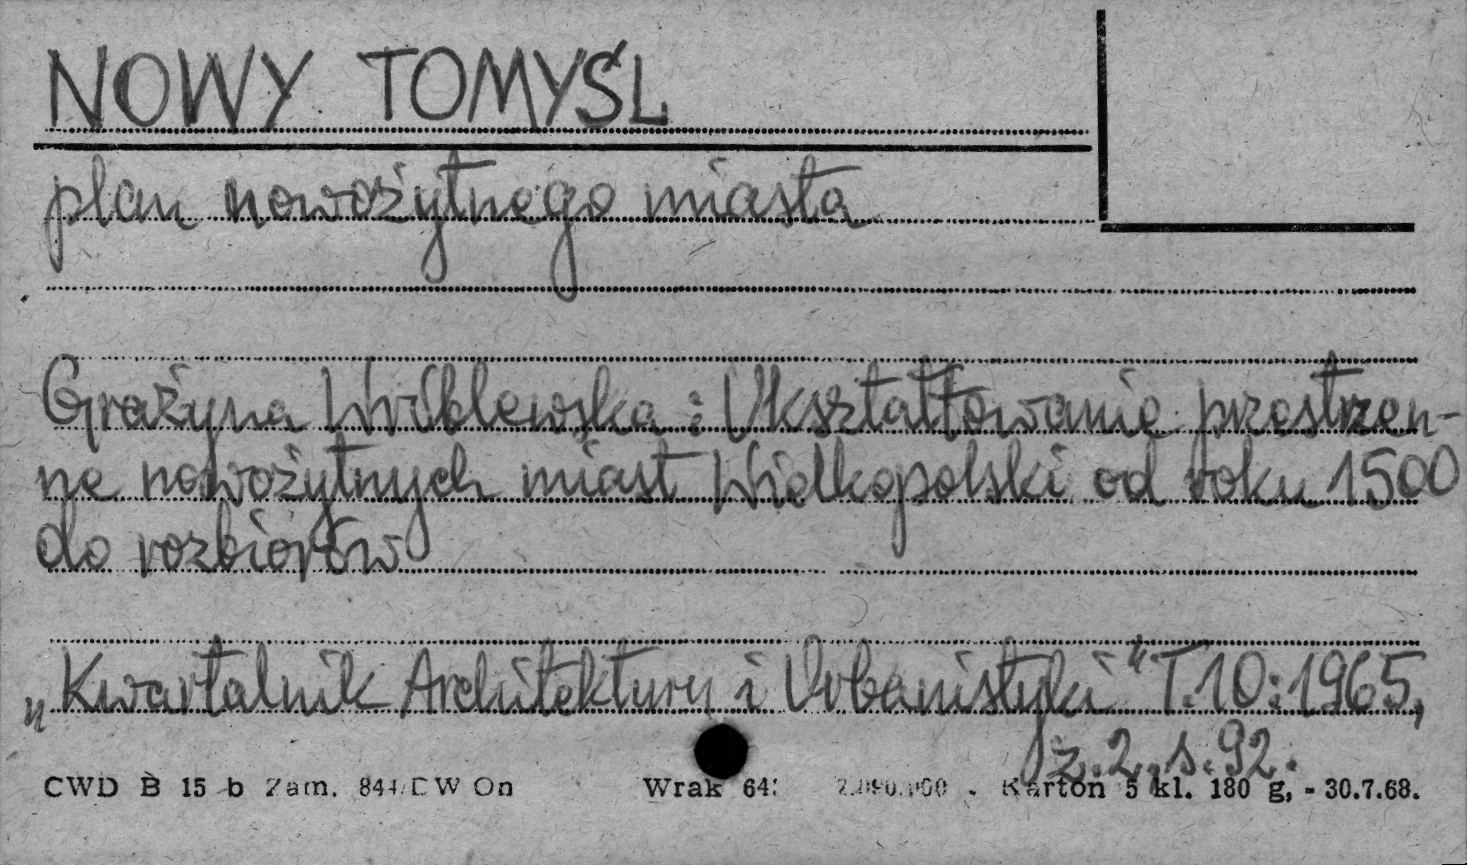 NOWY TOMYŚL
plan nowożytnego miasta
Grażyna Wróblewska : Ukształtowanie przestrzen-
ne nowożytnych miast Wielkopolski od roku 1500
do rozbiorów
„Kwartalnik Architektury i Urbanistyki" T.10:1965,
z.2. s.92.
CWD B 15 b Zam. 844/CW On Wrak 64 - Karton 5 kl. 180 g, - 30.7.68.